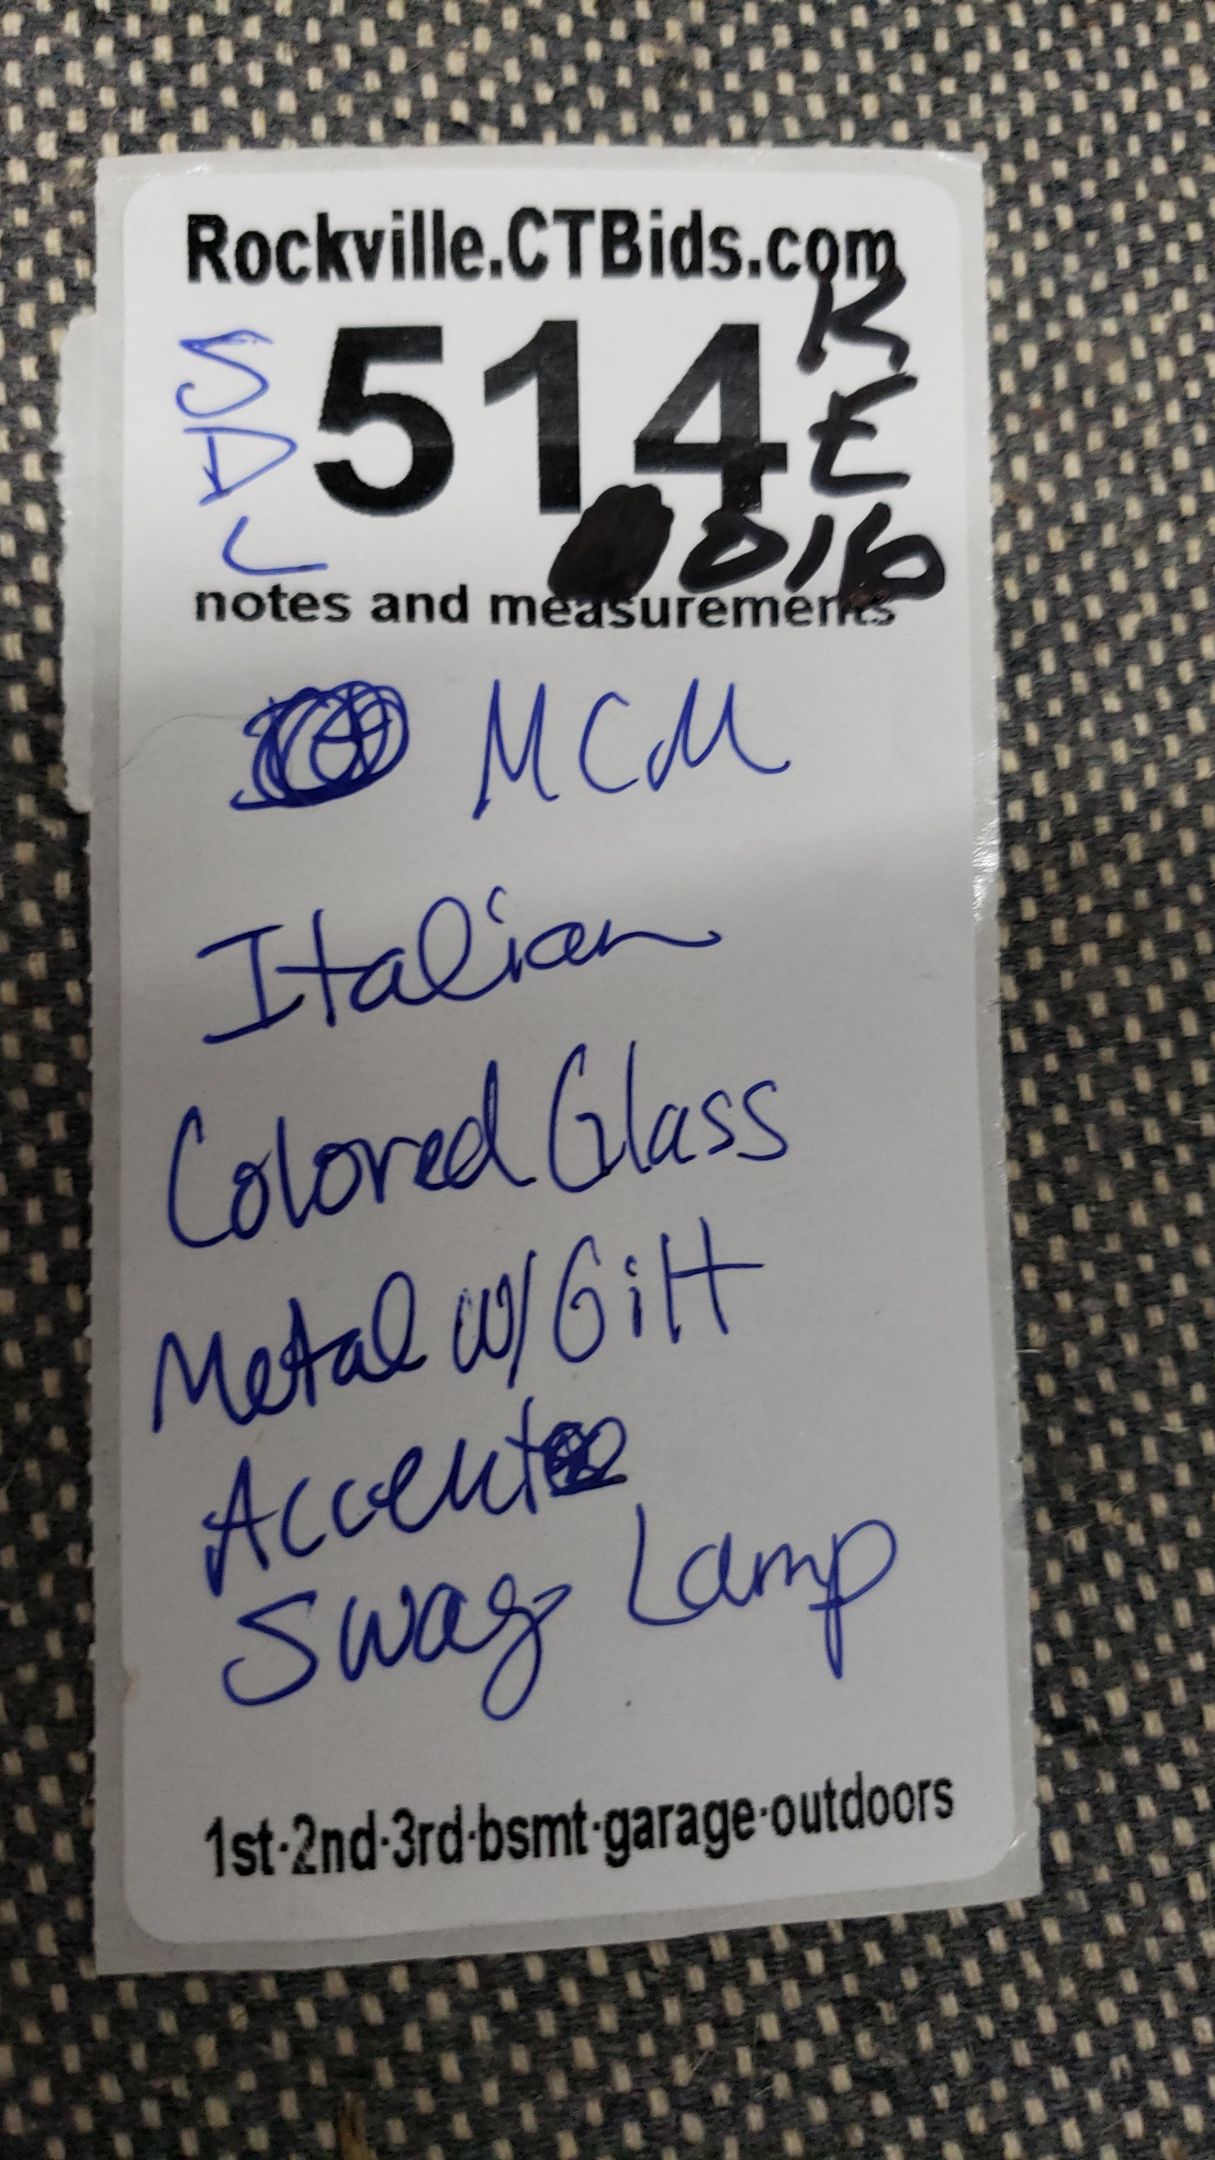 Rockville.CTBids.com
SDL
514
RE
016
notes and measurements
MCM
Italian
Colored Glass
Metal w/Gilt
Accent
Swag Lamp
1st·2nd·3rd·bsmt·garage·outdoors